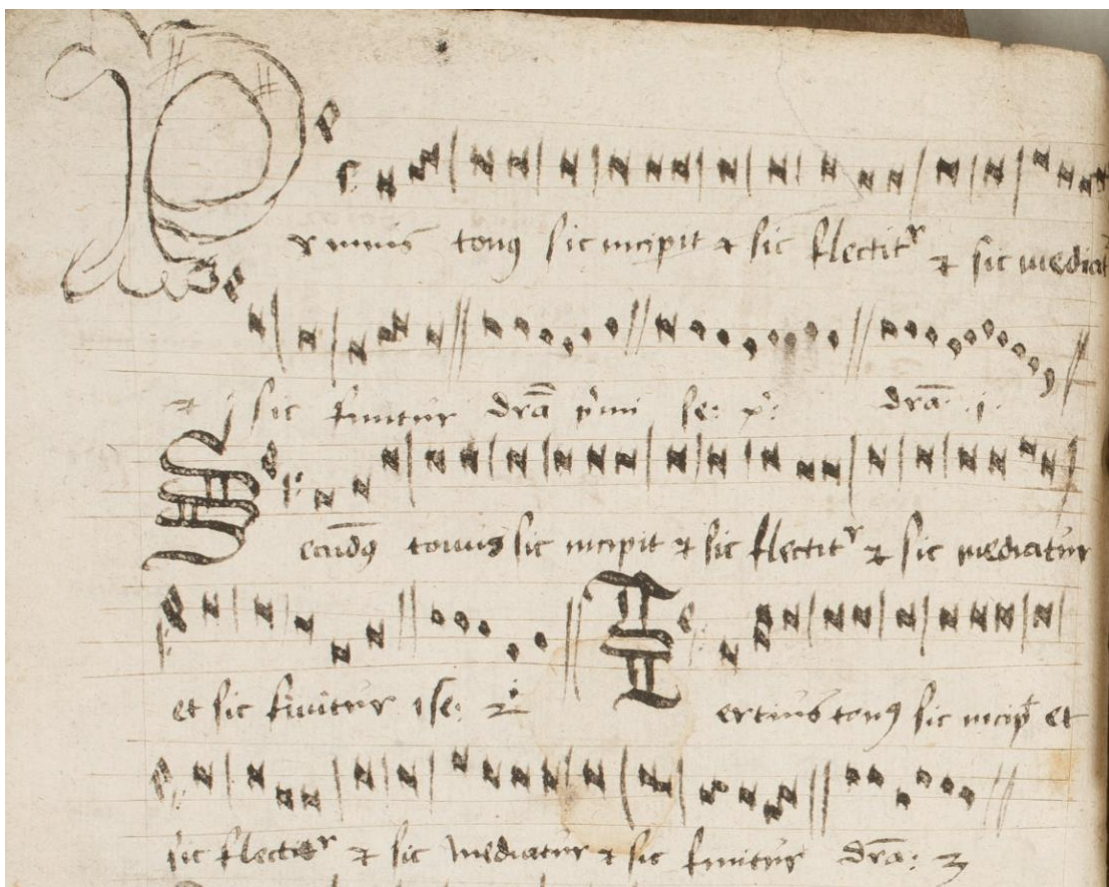 Primus tonꝯ sic incipit ⁊ sic flectitʳ ⁊ sic mediat
⁊ sic finitur dr̄a p̓mi se: p̓: dr̄a .j.
Secūdꝯ tonus sic incipit ⁊ sic flectitʳ ⁊ sic mediatur
et sic finitur 1se: 2ⁱ Tertius tonꝯ sic incip̄ et
sic flectitʳ ⁊ sic mediatur ⁊ sic finitur dr̄a: 3